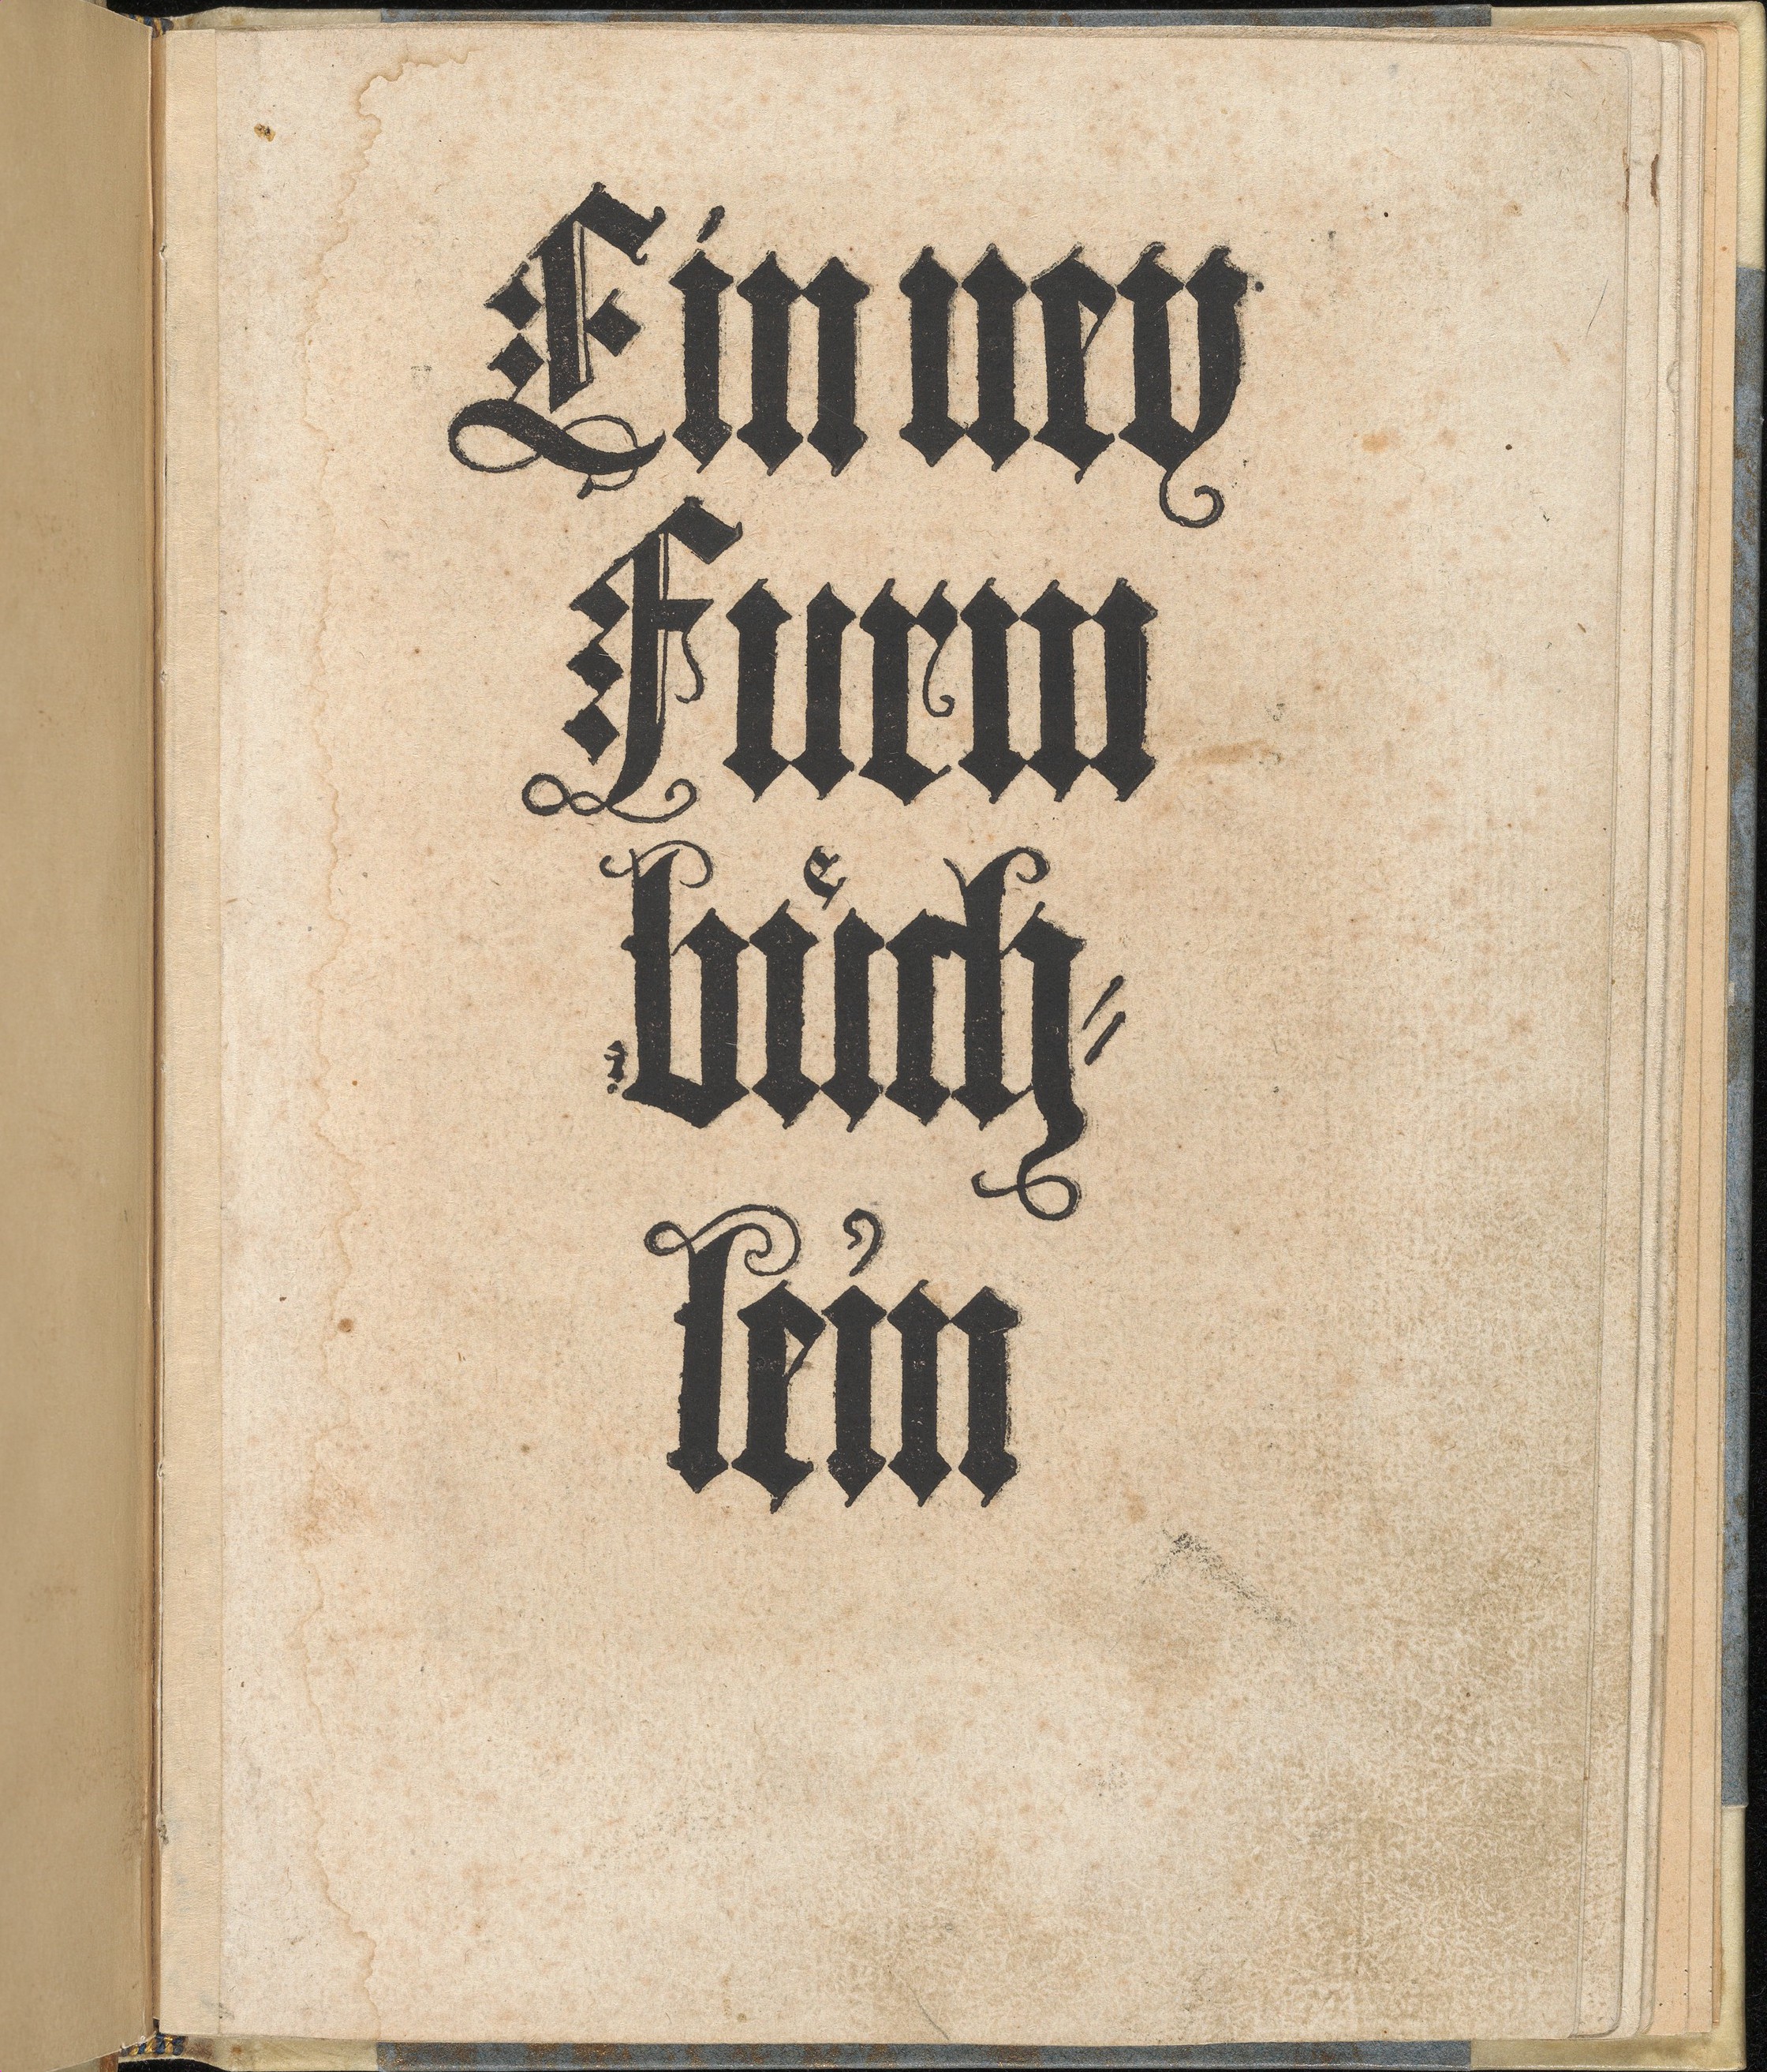 Ein ney
Furm
buͤch⸗
lein